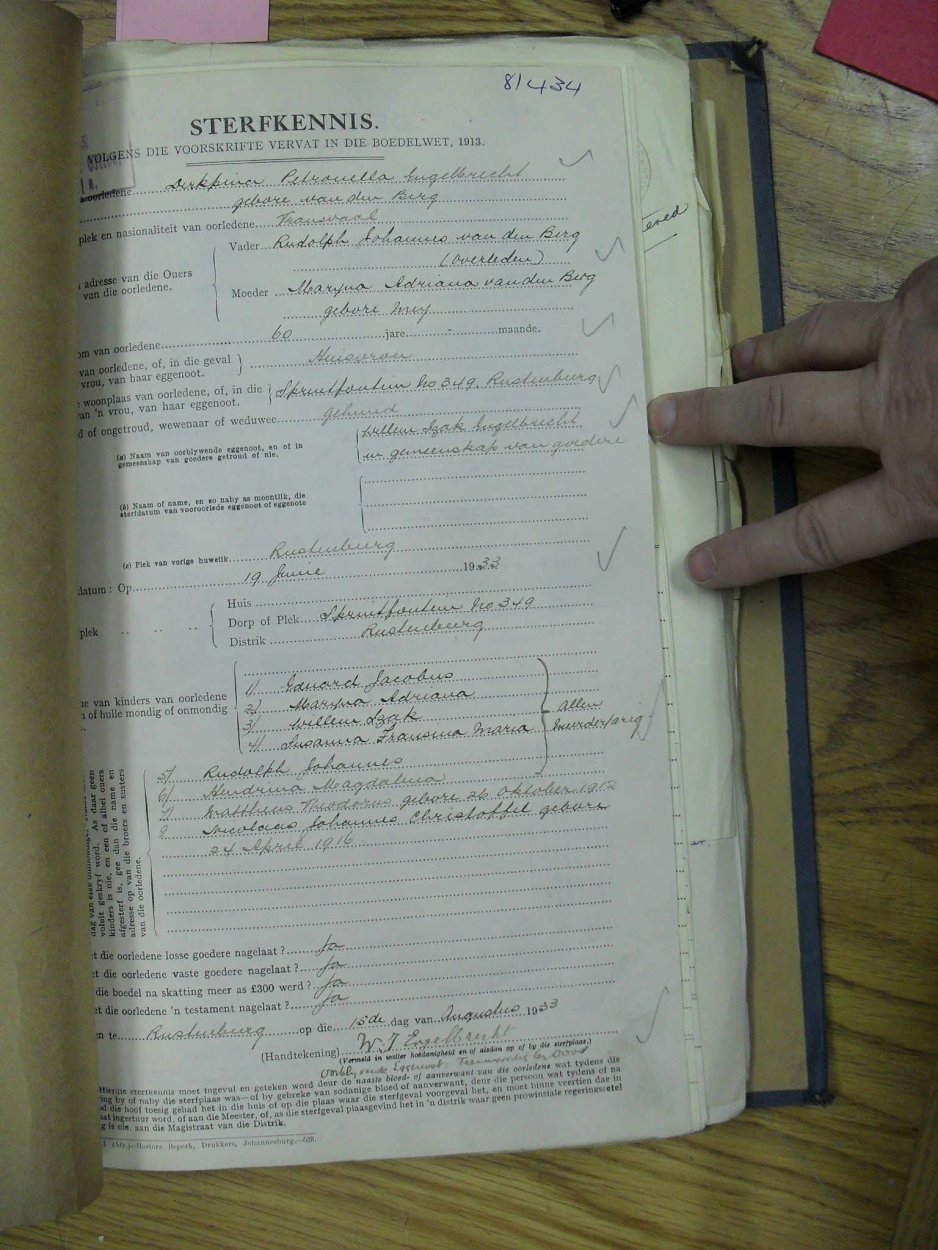 81434
STERFKENNIS.
VOLGENS DIE VOORSKRIFTE VERVAT IN DIE BOEDELWET, 1913.
oorledene Dirkpina Petronella Engelbrecht
gebore van den Berg
plek en nasionaliteit van oorledene Transvaal
Vader Rudolph Johannes van den Berg
(Overleden)
adresse van die Ouers
van die oorledene.
Moeder Maryna Adriana van den Berg
gebore Mey
om van oorledene 60 jare - maande.
van oorledene, of, in die geval
vrou, van haar eggenoot. Huisvrou
woonplaas van oorledene, of, in die
van 'n vrou, van haar eggenoot. Spruitfontein No 349. Rustenburg
d of ongetroud, wewenaar of weduwee gehuud
(a) Naam van oorblywende eggenoot, en of in
gemeenskap van goedere getroud of nie.
Willem Izak Engelbrecht
in gemeenskap van goedere
(b) Naam of name, en so naby as moontlik, die
sterfdatum van vooroorlede eggenoot of eggenote
(c) Plek van vorige huwelik Rustenburg
datum: Op 19 Junie 1933
plek
Huis
Dorp of Plek Spruitfontein No 349
Distrik Rustenburg
ne van kinders van oorledene
of hulle mondig of onmondig
1/ Eduard Jacobus
2/ Maryna Adriana
3/ Willem Izak
4/ Susanna Fransina Maria
Allen
meerderjarig
5/ Rudolph Johannes
6/ Hendrina Magdalena
7/ Mattheus Theodorus gebore 26 Oktober 1912
8 Nicolaas Johannes Christoffel gebore
24 April 1916
voluit geskryf word. As daar geen
kinders is nie, en een of albei ouers
afgesterf is, gee dan die name en
adresse op van die broers en susters
van die oorledene.
et die oorledene losse goedere nagelaat? Ja
et die oorledene vaste goedere nagelaat? Ja
die boedel na skatting meer as £300 werd? Ja
et die oorledene 'n testament nagelaat? Ja
en te Rustenburg op die 15de dag van Augustus 1933
(Handtekening) W. J Engelbrecht
(Vermeld in watter hoedanigheid en of aldan op of by die sterfplaas.)
Oorblywende Eggenoot. Teenwoordig by dood
Hierdie sterfkennis moet ingevul en geteken word deur de naaste bloed- of aanverwant van die oorledene wat tydens die
ing by of naby die sterfplaas was—of by gebreke van sodanige bloed of aanverwant, deur die persoon wat tydens of na
d die hoof toesig gehad het in die huis of op die plaas waar die sterfgeval voorgeval het, en moet binne veertien dae in
aat ingestuur word, of aan die Meester, of, as die sterfgeval plaasgevind het in 'n distrik waar geen prowinsiale regeringsetel
g is nie, aan die Magistraat van die Distrik.
1 (Afr.)—Hortors Beperk, Drukkers, Johannesburg.—